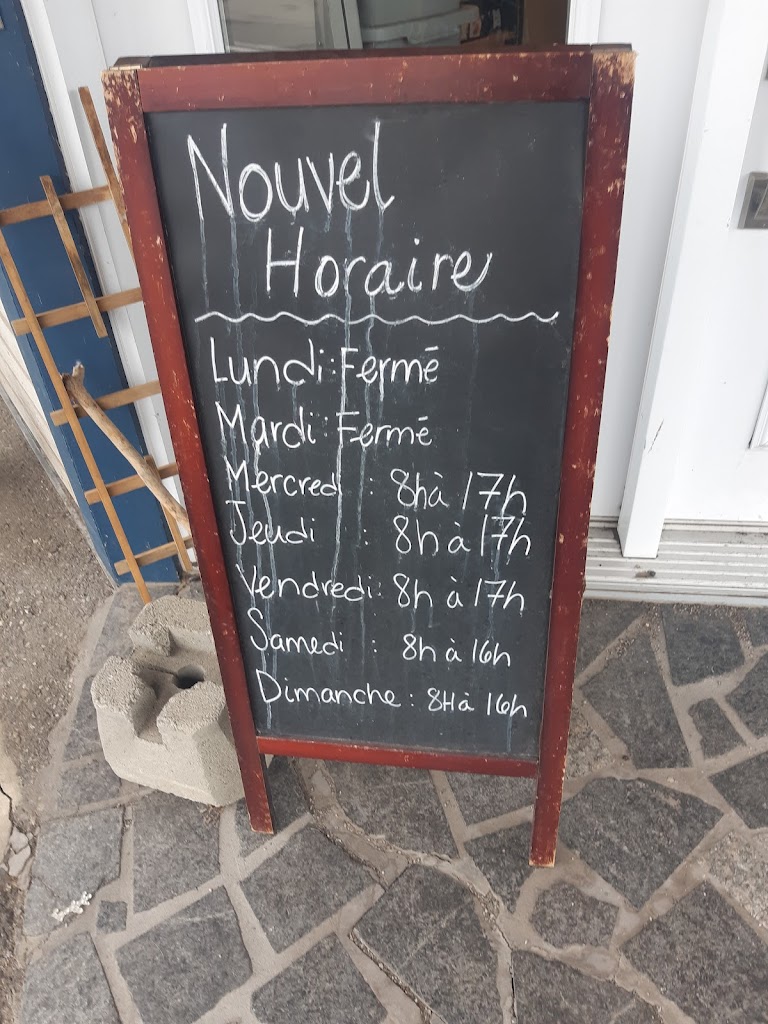 Nouvel
Horaire
Lundi: Fermé
Mardi: Fermé
Mercredi : 8h à 17h
Jeudi : 8h à 17h
Vendredi: 8h à 17h
Samedi : 8h à 16h
Dimanche: 8H à 16h